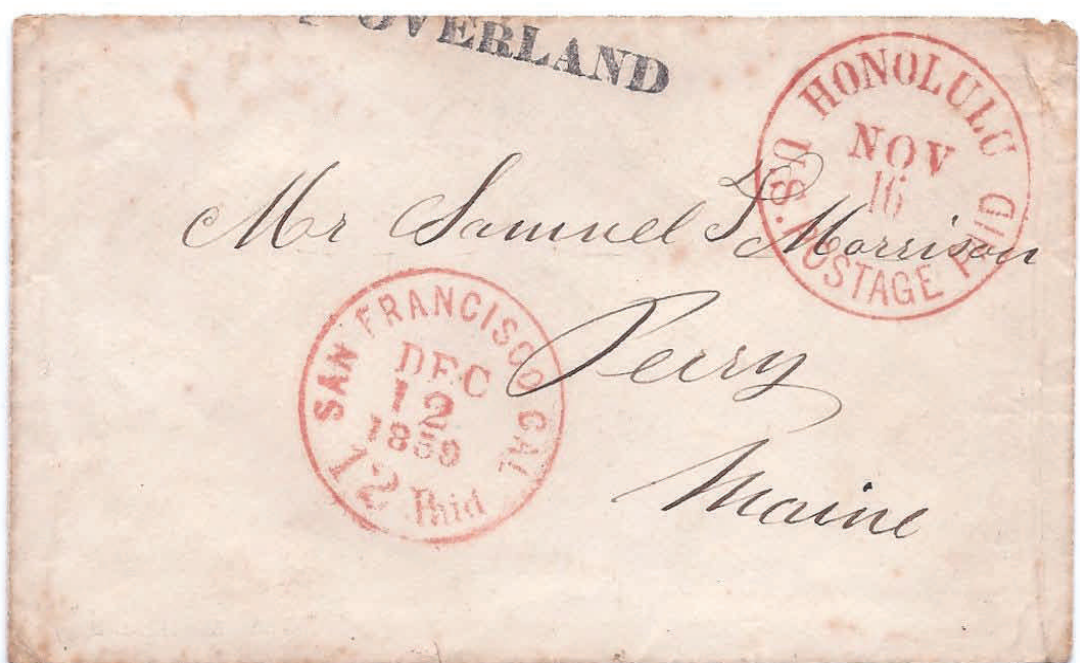 OVERLAND
HONOLULU
NOV
16
U.S. POSTAGE PAID
Mr Samuel T Morrison
SAN FRANCISCO CAL
DEC
12
1859
12 Paid
Perry
Maine